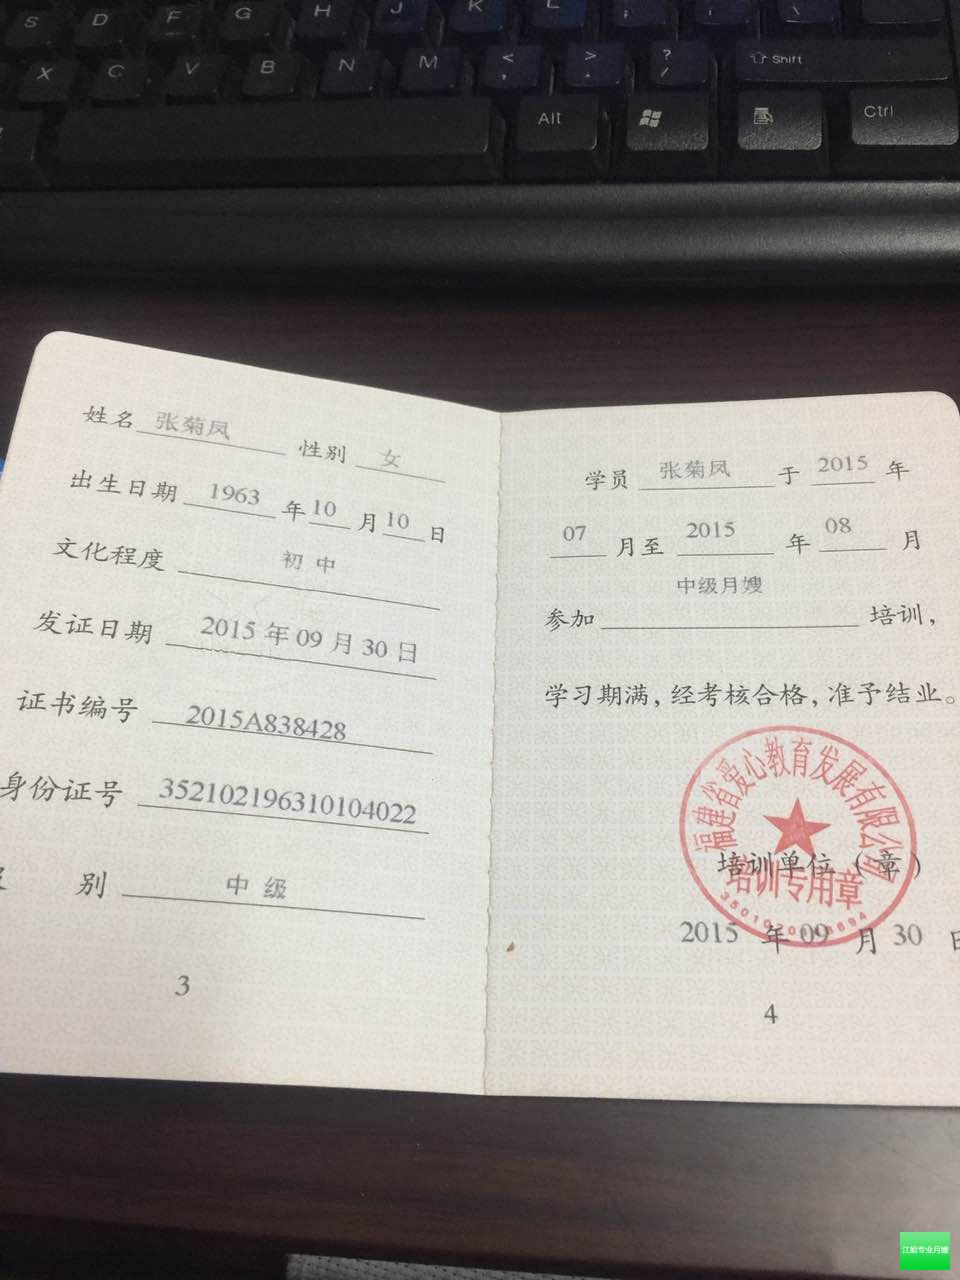 S D F G H J K L ; : \
X C V B N M < , > . ? / Shift
Alt Ctrl
姓名 张菊凤 性别 女
出生日期 1963 年 10 月 10 日
文化程度 初中
发证日期 2015 年 09 月 30 日
证书编号 2015A838428
身份证号 352102196310104022
别 中级
3
学员 张菊凤 于 2015 年
07 月至 2015 年 08 月
参加 中级月嫂 培训，
学习期满，经考核合格，准予结业。
福建省爱心教育发展有限公司
培训单位（章）
培训专用章
2015 年 09 月 30 日
4
江姐专业月嫂